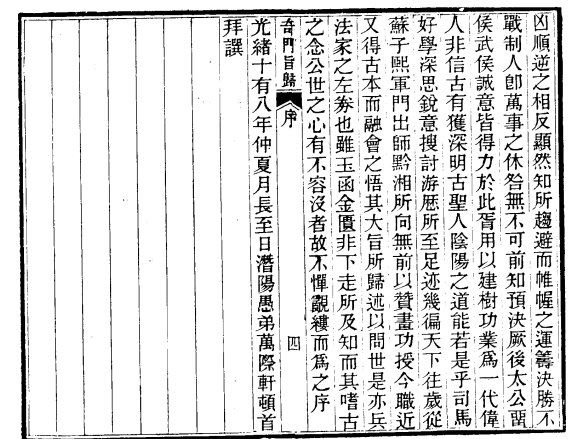 凶順逆之相反顯然知所趨避而帷幄之運籌決勝不
戰制人卽萬事之休咎無不可前知預決厥後太公畱
侯武侯誠意皆得力於此胥用以建樹功業爲一代偉
人非信古有獲深明古聖人陰陽之道能若是乎司馬
好學深思銳意搜討游歷所至足迹幾徧天下往歲從
蘇子熙軍門出師黔湘所向無前以贊畫功授今職近
又得古本而融會之悟其大旨所歸述以問世是亦兵
法家之左劵也雖玉函金匱非下走所及知而其嗜古
之念公世之心有不容沒者故不憚覼縷而爲之序
奇門旨歸 序 四
光緒十有八年仲夏月長至日潛陽愚弟萬際軒頓首
拜譔